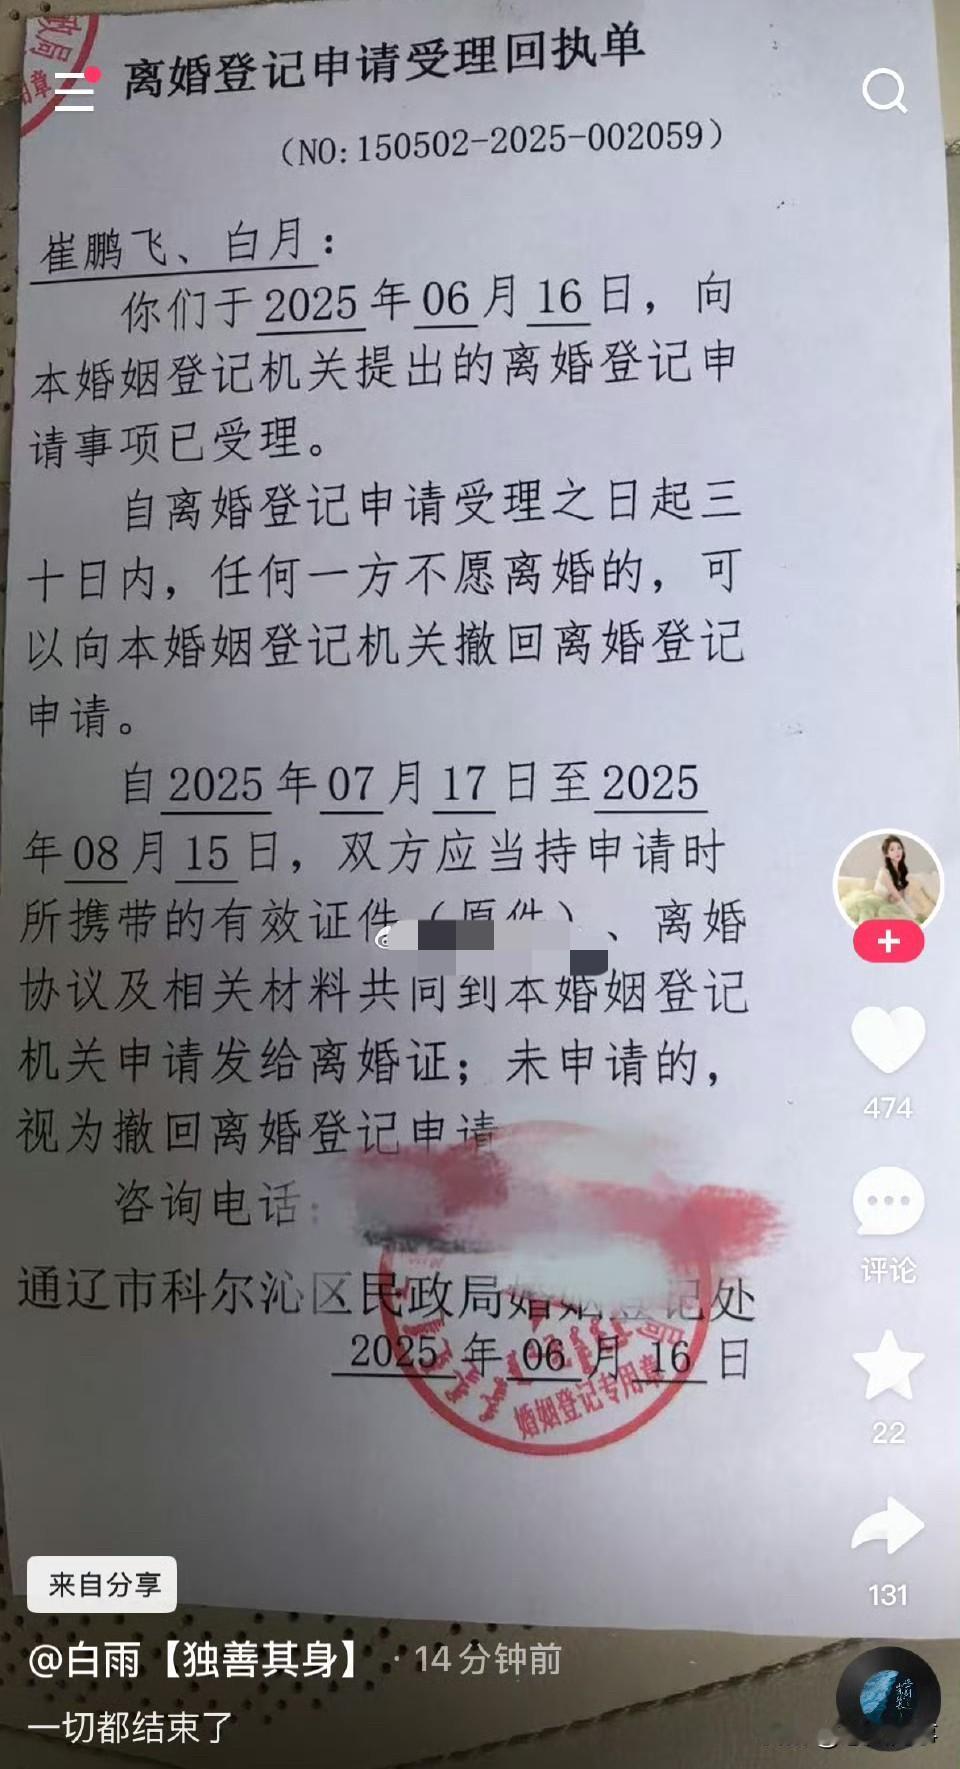 离婚登记申请受理回执单
（NO:150502-2025-002059）
崔鹏飞、白月：
你们于2025年06月16日，向
本婚姻登记机关提出的离婚登记申
请事项已受理。
自离婚登记申请受理之日起三
十日内，任何一方不愿离婚的，可
以向本婚姻登记机关撤回离婚登记
申请。
自2025年07月17日至2025
年08月15日，双方应当持申请时
所携带的有效证件（原件）、离婚
协议及相关材料共同到本婚姻登记
机关申请发给离婚证；未申请的，
视为撤回离婚登记申请
咨询电话：
通辽市科尔沁区民政局婚姻登记处
2025年06月16日
婚姻登记专用章
474
评论
22
131
来自分享
@白雨【独善其身】 · 14分钟前
一切都结束了